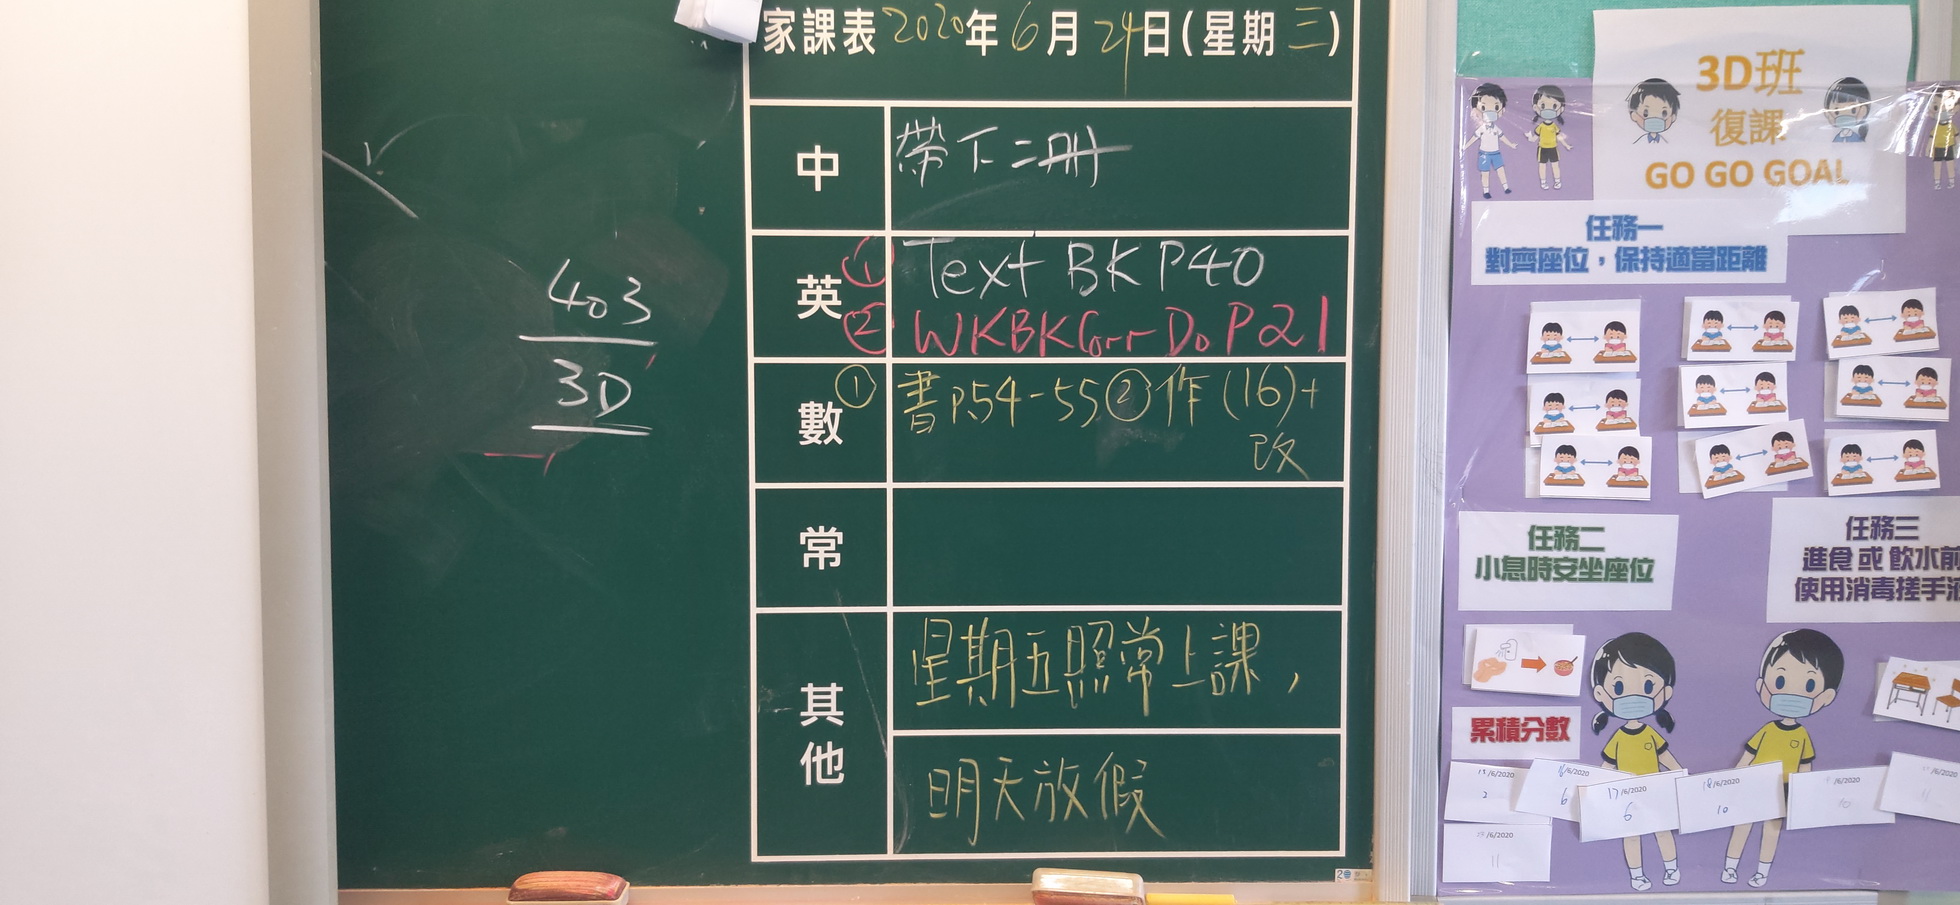 家課表 2020年 6月 24日(星期 三)
中 帶下二冊
英 ① Text BK P40
② WKBK Corr Do P21
數 ① 書 P.54-55 ② 作 (16)+
改
常
其他 星期五照常上課,
明天放假
403
3D
3D班
復課
GO GO GOAL
任務一
對齊座位,保持適當距離
任務二
小息時安坐座位
任務三
進食 或 飲水前
使用消毒搓手液
累積分數
/6/2020
2
/6/2020
6
17/6/2020
6
18/6/2020
10
/6/2020
10
/6/2020
11